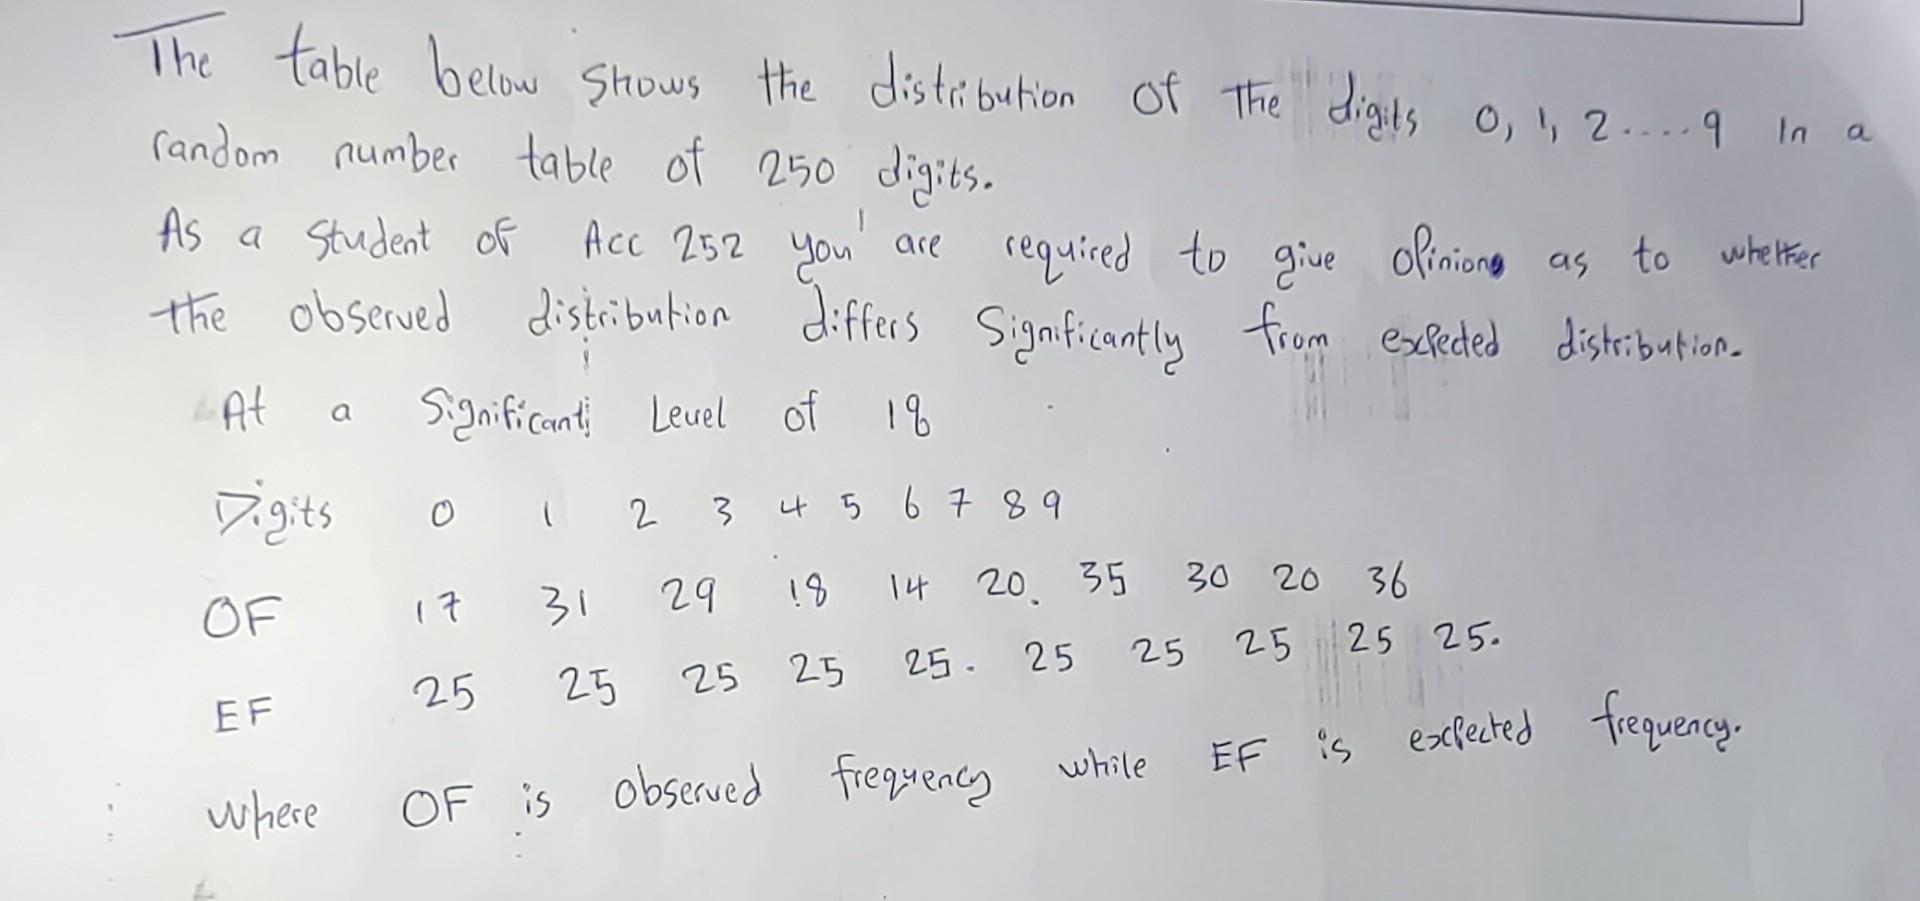 The table below shows the distribution of the digits 0, 1, 2....9 in a
random number table of 250 digits.
As a student of Acc 252 you are required to give opinions as to whether
the observed distribution differs significantly from expected distribution.
At a significant level of 1%
Digits 0 1 2 3 4 5 6 7 8 9
OF 17 31 29 18 14 20 35 30 20 36
EF 25 25 25 25 25 25 25 25 25 25.
Where OF is observed frequency while EF is expected frequency.